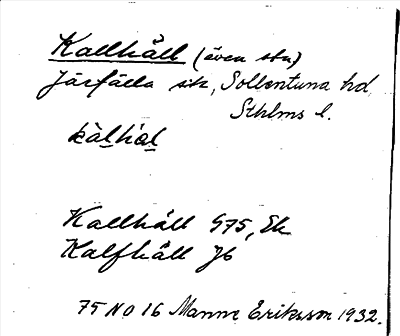 Kallhäll (även stn)
Järfälla sn, Sollentuna hd,
Sthlms l.
kàlhæl
Kallhäll G75, Ek
Kalfhäll J6
75 NO 16 Manne Eriksson 1932.